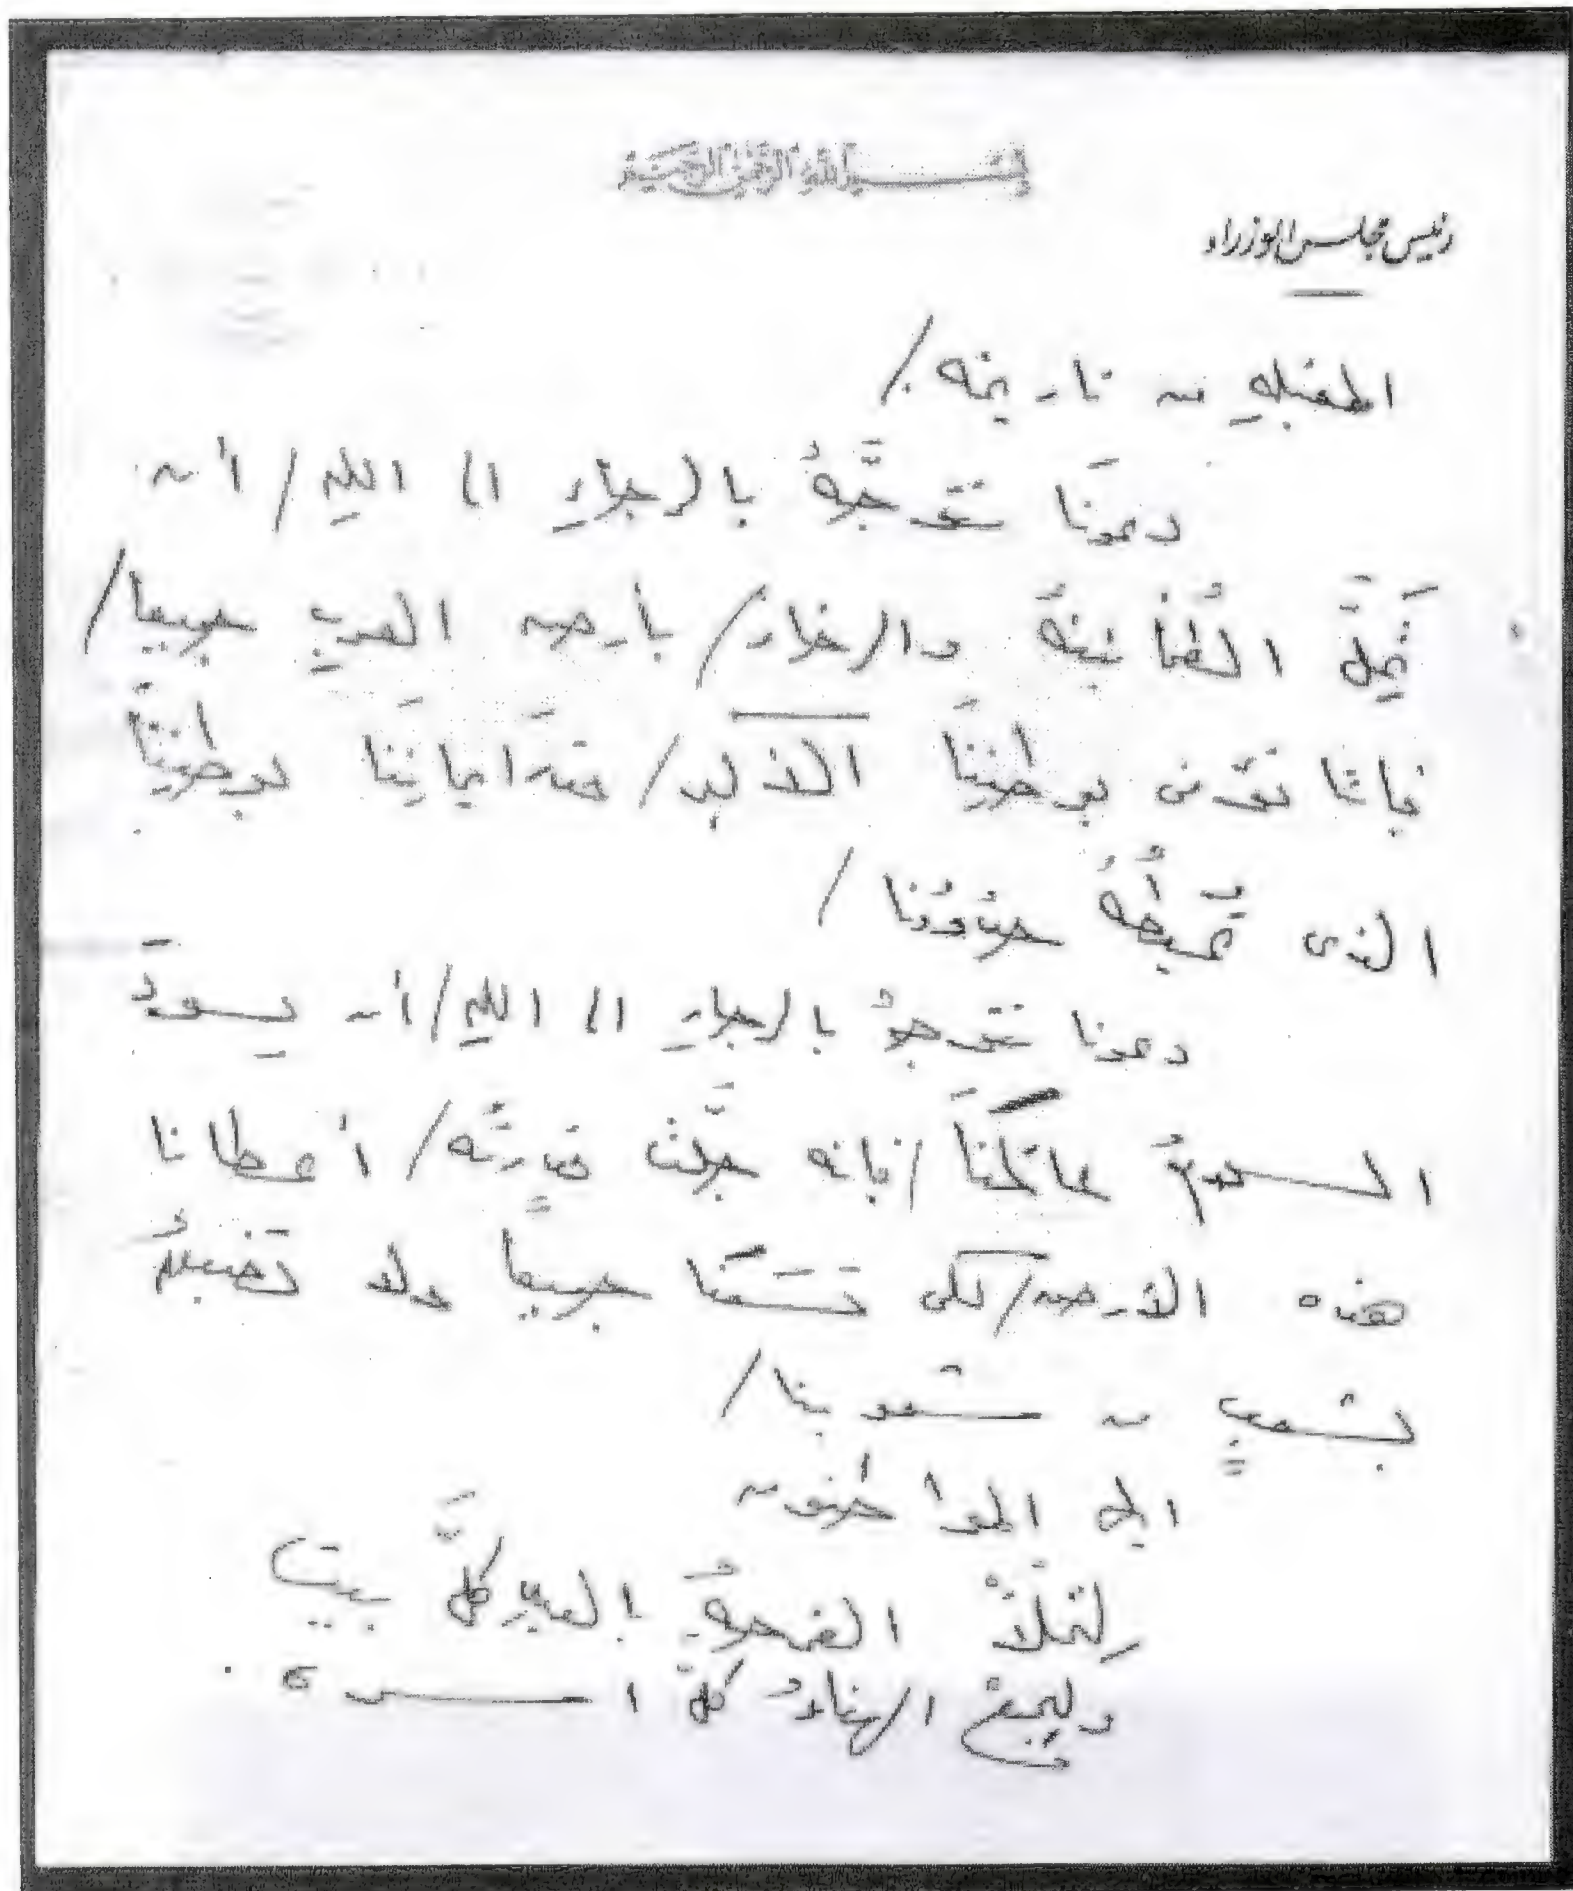 بسم الله الرحمن الرحيم
رئيس مجلس الوزراء
المقبلةِ من تاريخه /
دعونَا نتوجَّهُ بالرجاءِ الى اللهِ / أن
تحِلَّ الطُمأنينهُ والرخاءُ / بأرض العربِ جميعا /
فإننا نؤمن بوطنِنَا الأكبر / قدرَ ايمانِنَا بوطنِنَا
الذى تَحميهُ حقوقُنا /
دعونا نتوجهُ بالرجاءِ الى اللهِ / أن يسودَ
الســلامُ عالمَنَا / فإنه جلَّت قدرتُه / أعطانا
هذه الأرض / لكى تَسَعَنَا جميعاً ولا تضيقُ
بشعبٍ من شعوبنا /
ايها المواطنون
لِتملأْ الفرحةُ بالعيدِ كلَّ بيت
وليجمع الهناءُ كلَّ أســرة .